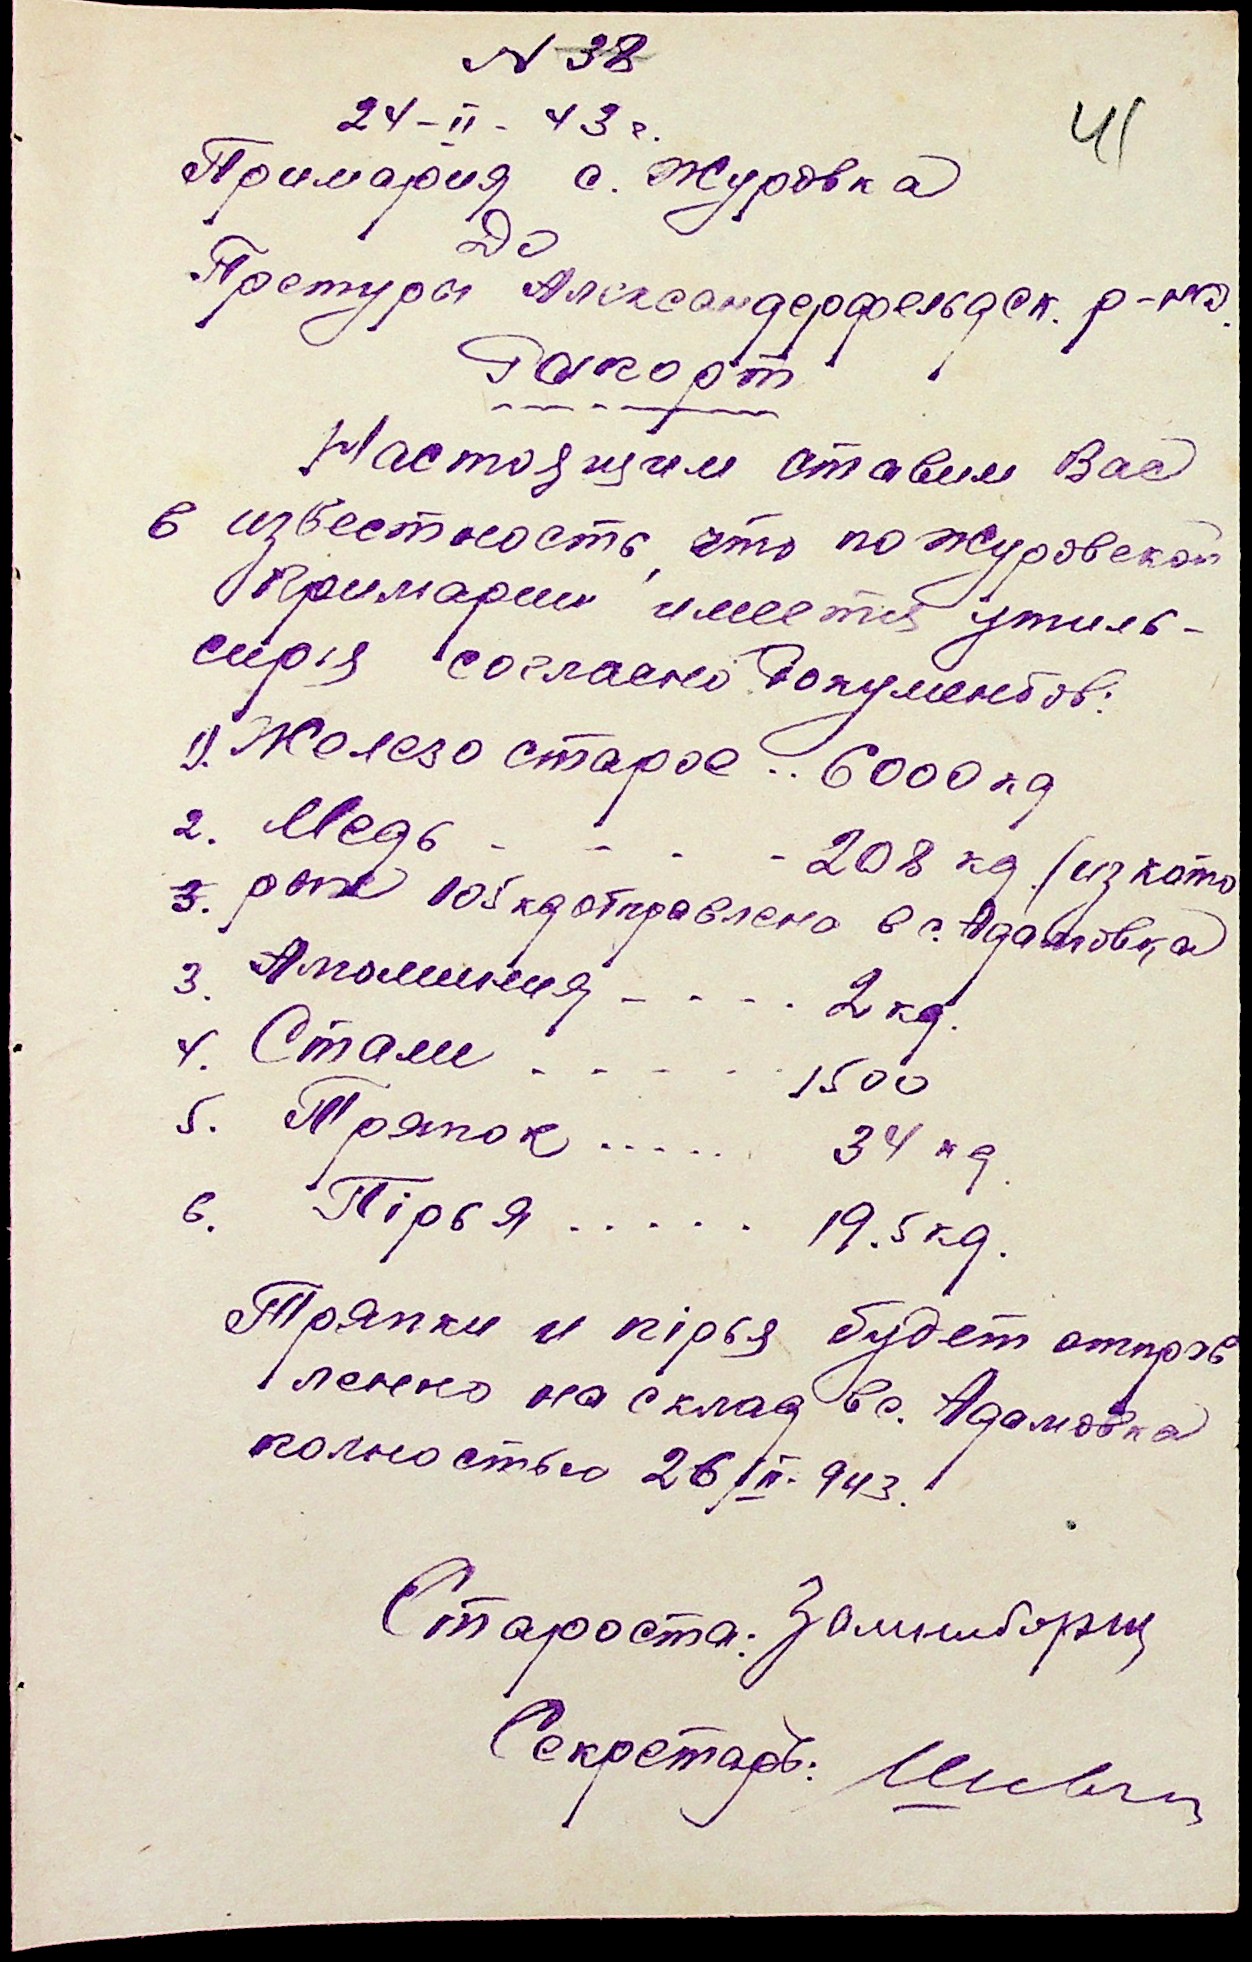 N 38
24-II-43 г.
41
Примария с. Журовка
До
Претуры Александерфельдск. р-на.
Рапорт
Настоящим ставим Вас
в известность, что по Журовской
примарии имеется утиль-
сирья согласно документов:
1). Железо старое .. 6000 кg
2. Медь - - - - 208 кg. (из кото
3. рых 105 кg отправлено в с. Адамовка
3. Алюминия - - - - 2 кg.
4. Стали - - - - - 1500
5. Тряпок ..... 34 кg.
6. Пірья ..... 19.5 кg.
Тряпки и пірья будет отправ
ленно на склад в с. Адамовка
полностью 26/II-943.
Староста:
Секретарь: